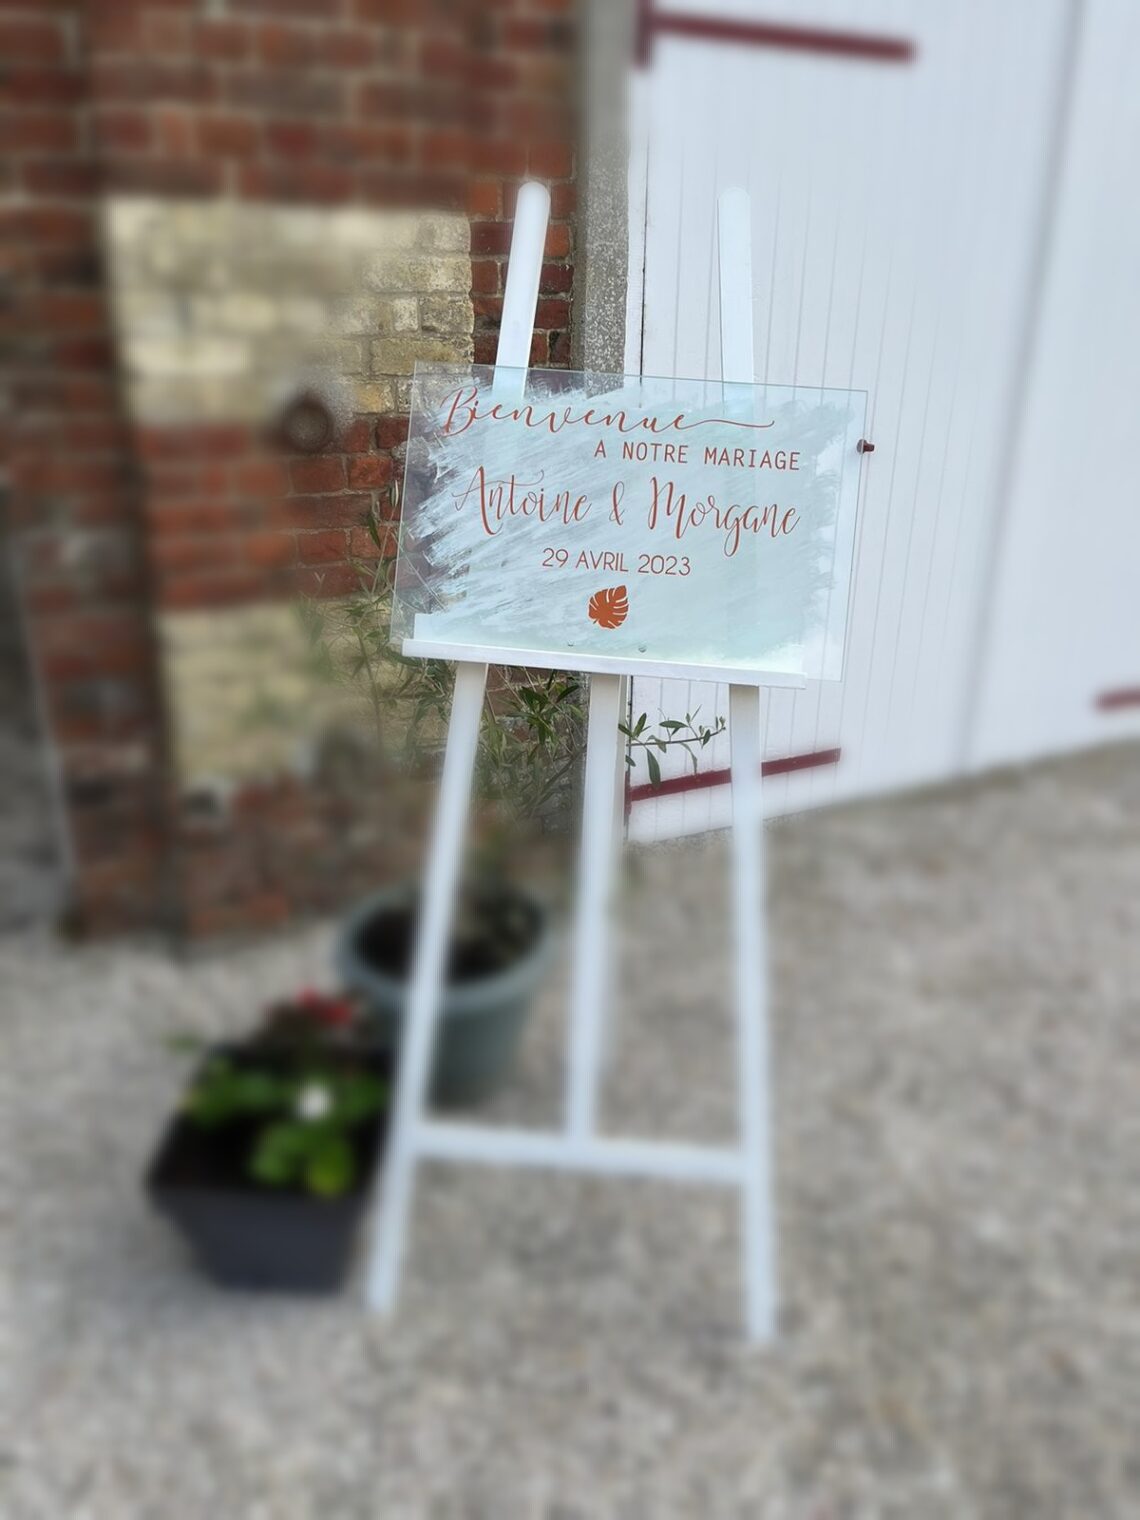 Bienvenue
A NOTRE MARIAGE
Antoine & Morgane
29 AVRIL 2023